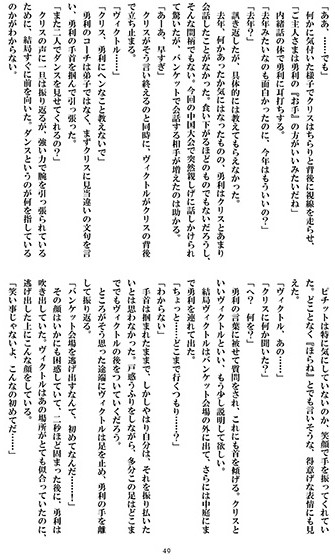 「あ、……でも」
何かに気付いた様子でクリスはちらりと背後に視線を走らせ、
内緒話の体で勇利に耳打ちする。
「ご主人さまは勇利の『お手』の方がいいみたいだね」
「去年みたいなのも面白かったのに、今年はもういいの？」
「去年？」
訊き返したが、具体的には教えてもらえなかった。
去年、何かあったか気にはなったものの、勇利はクリスとあまり
会話したことがなかった。食い下がるほどのものでもないだろうし、
そんな間柄でもない。今回の中国大会で突然親しげに話しかけられ
て驚いたが、バンケットで会話する相手が増えたのは助かる。
「あーあ、早すぎ」
クリスがそう言い終えるのと同時に、ヴィクトルがクリスの背後
で立ち止まる。
「ヴィクトル……」
「クリス、勇利にヘンなこと教えないで」
勇利のコーチは弟子ではなく、まずクリスに見当違いの文句を言
い、勇利の手首を掴んで引っ張った。
「また二人でダンスを見せてくれるの？」
クリスの声に一旦は振り返るが、強い力で腕を引っ張られている
ために、結局すぐに前を向いた。ダンスというのが何を指している
のかがわからない。
ピチットは特に気にしていないのか、笑顔で手を振ってくれてい
た。どことなく『ほらね』とでも言いそうな、得意げな表情にも見
えた。
「ヴィクトル、あの……」
「クリスに何か聞いた？」
「へ？　何を？」
勇利の言葉に被せて質問をされ、これにも首を傾げる。クリスと
いいヴィクトルといい、もう少し説明して欲しい。
結局ヴィクトルはバンケット会場の外に出て、さらには中庭にま
で勇利を連れて出た。
「ちょっと……どこまで行くつもり……？」
「わからない」
手首は掴まれたままで、しかしやはり自分は、それを振り払いた
いとは思わなかった。戸惑うふりをしながら、多分この足はどこま
ででもヴィクトルの後をついていくだろう。
ところがそう思った途端にヴィクトルは足を止め、勇利の手を離
して振り返る。
「バンケット会場を逃げ出すなんて、初めてなんだ……！」
その顔はいかにも困惑していて、二秒ほど固まった後に、勇利は
吹き出していた。ヴィクトルはあの場所がとても似合っていたのに、
逃げ出した上にこんな顔をしている。
「笑い事じゃないよ、こんなの初めてだ……！」
49